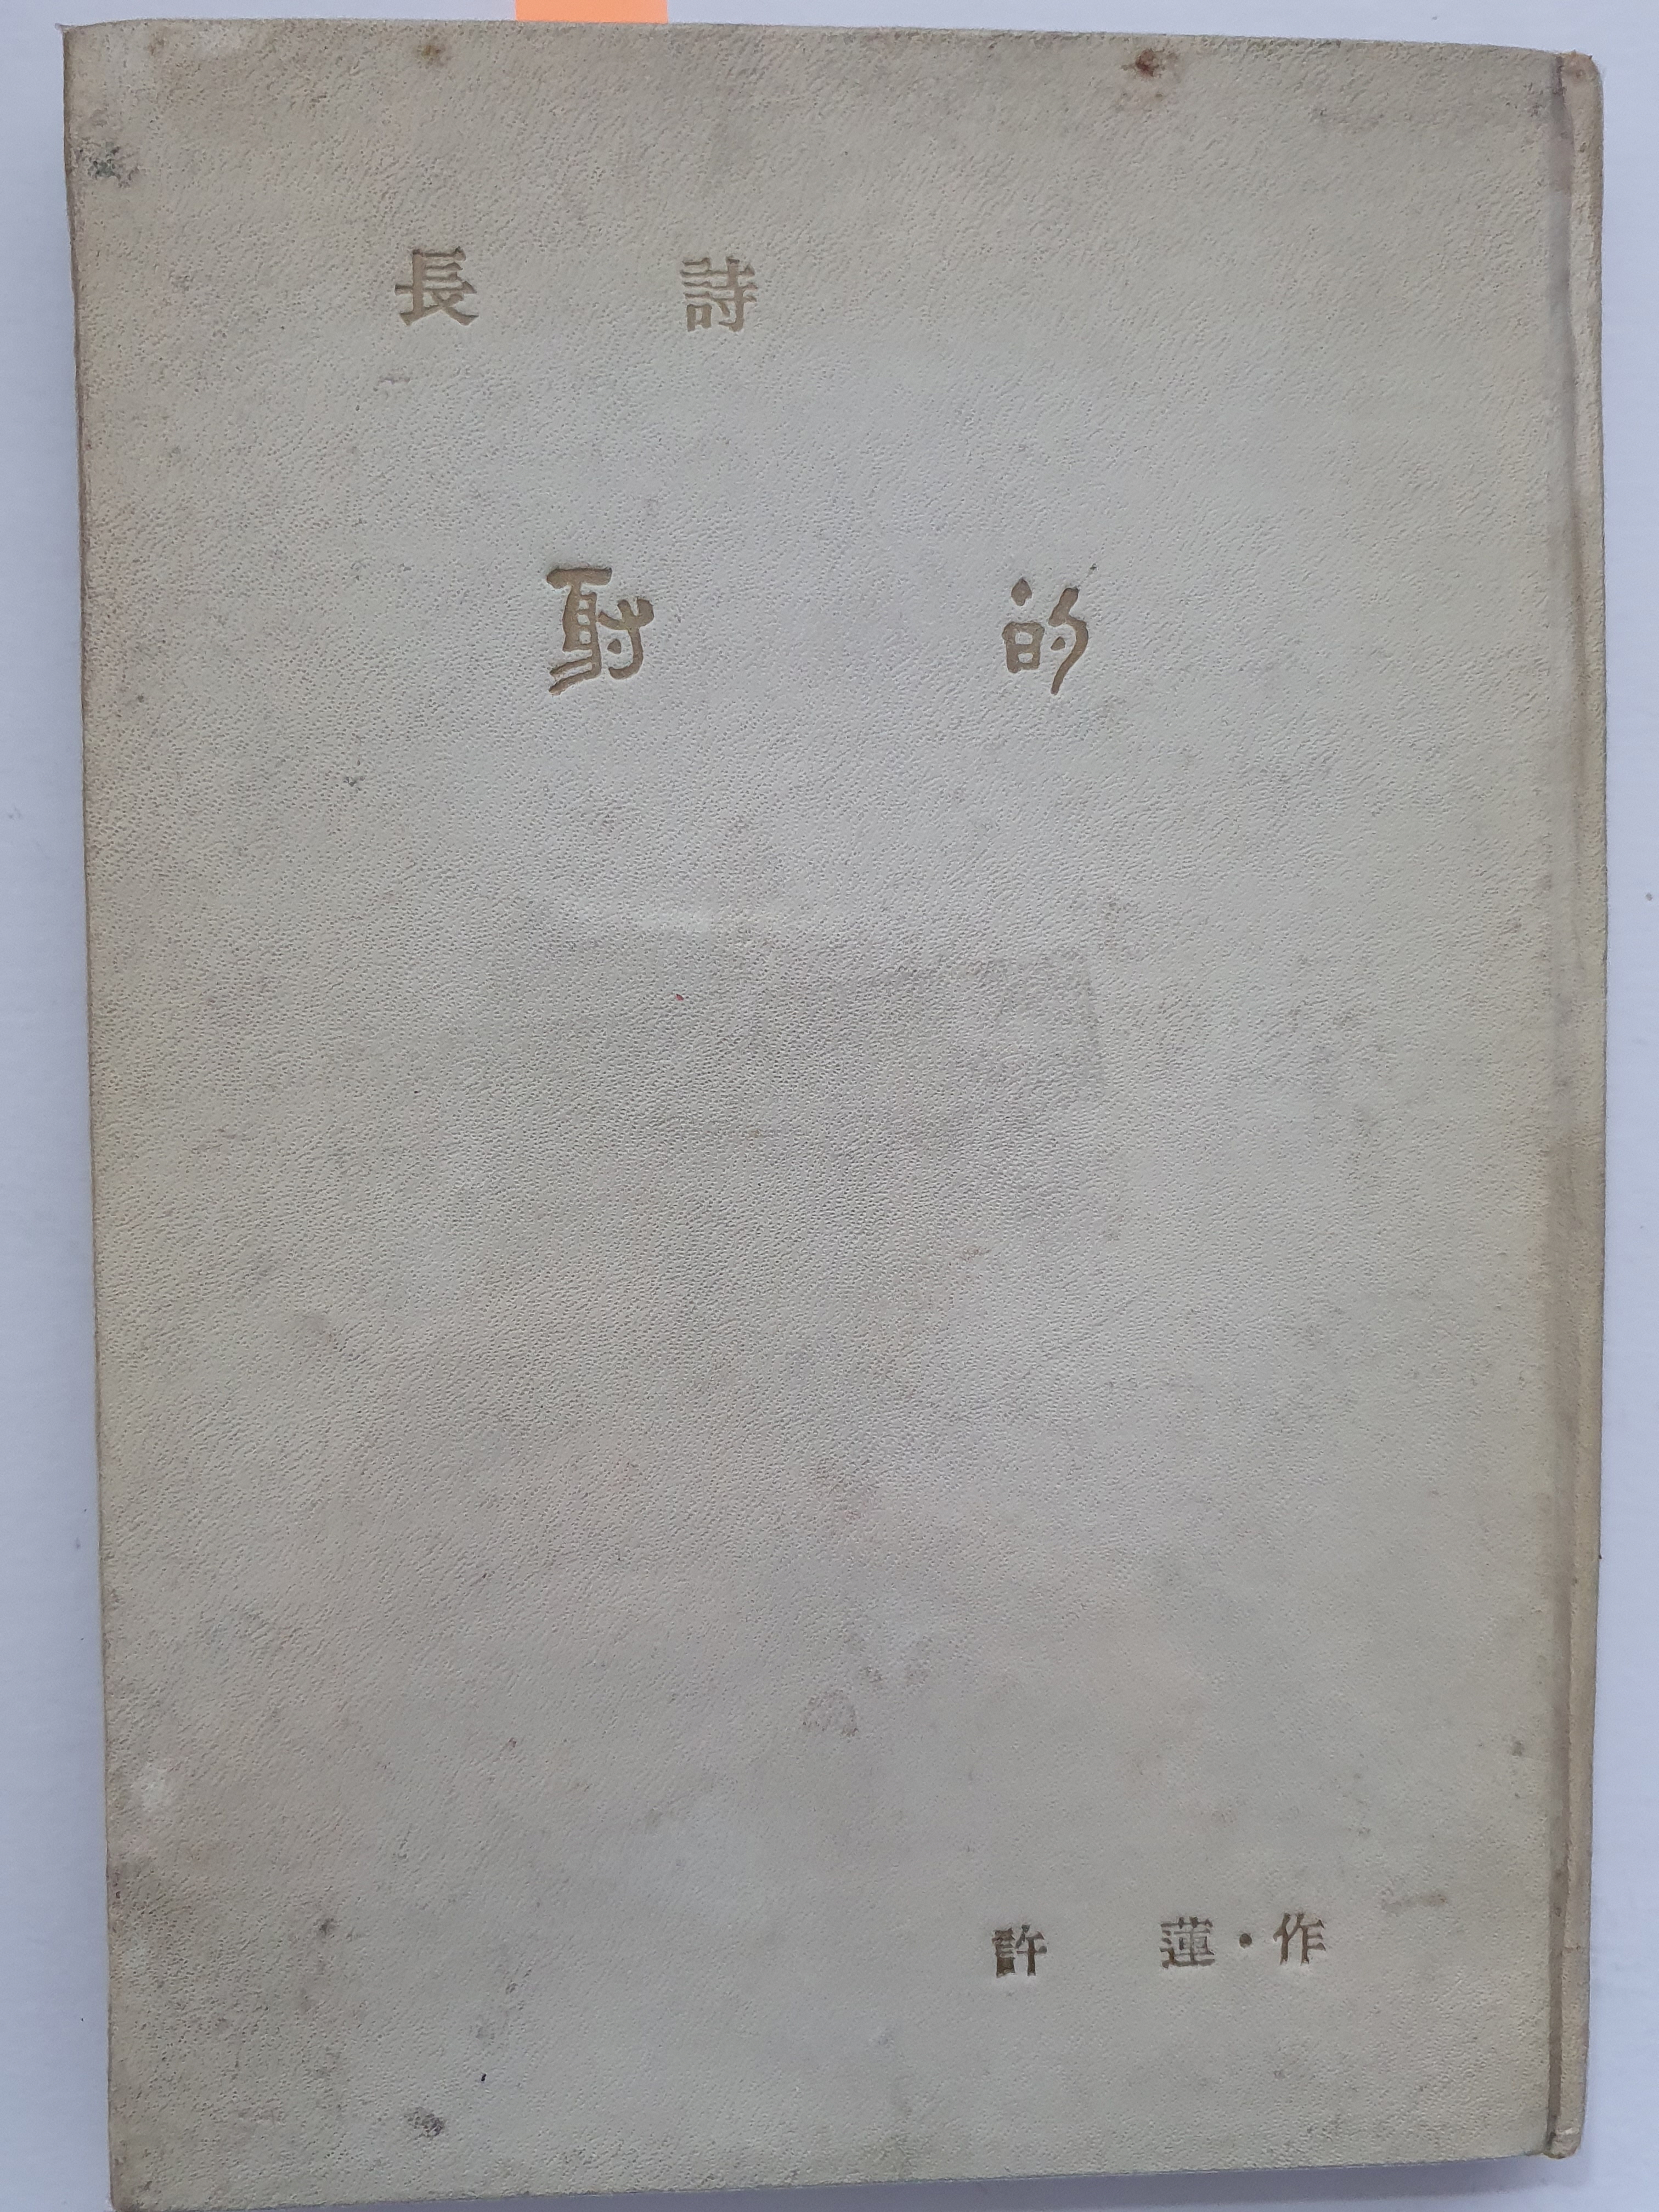 長詩
射的
許蓮・作